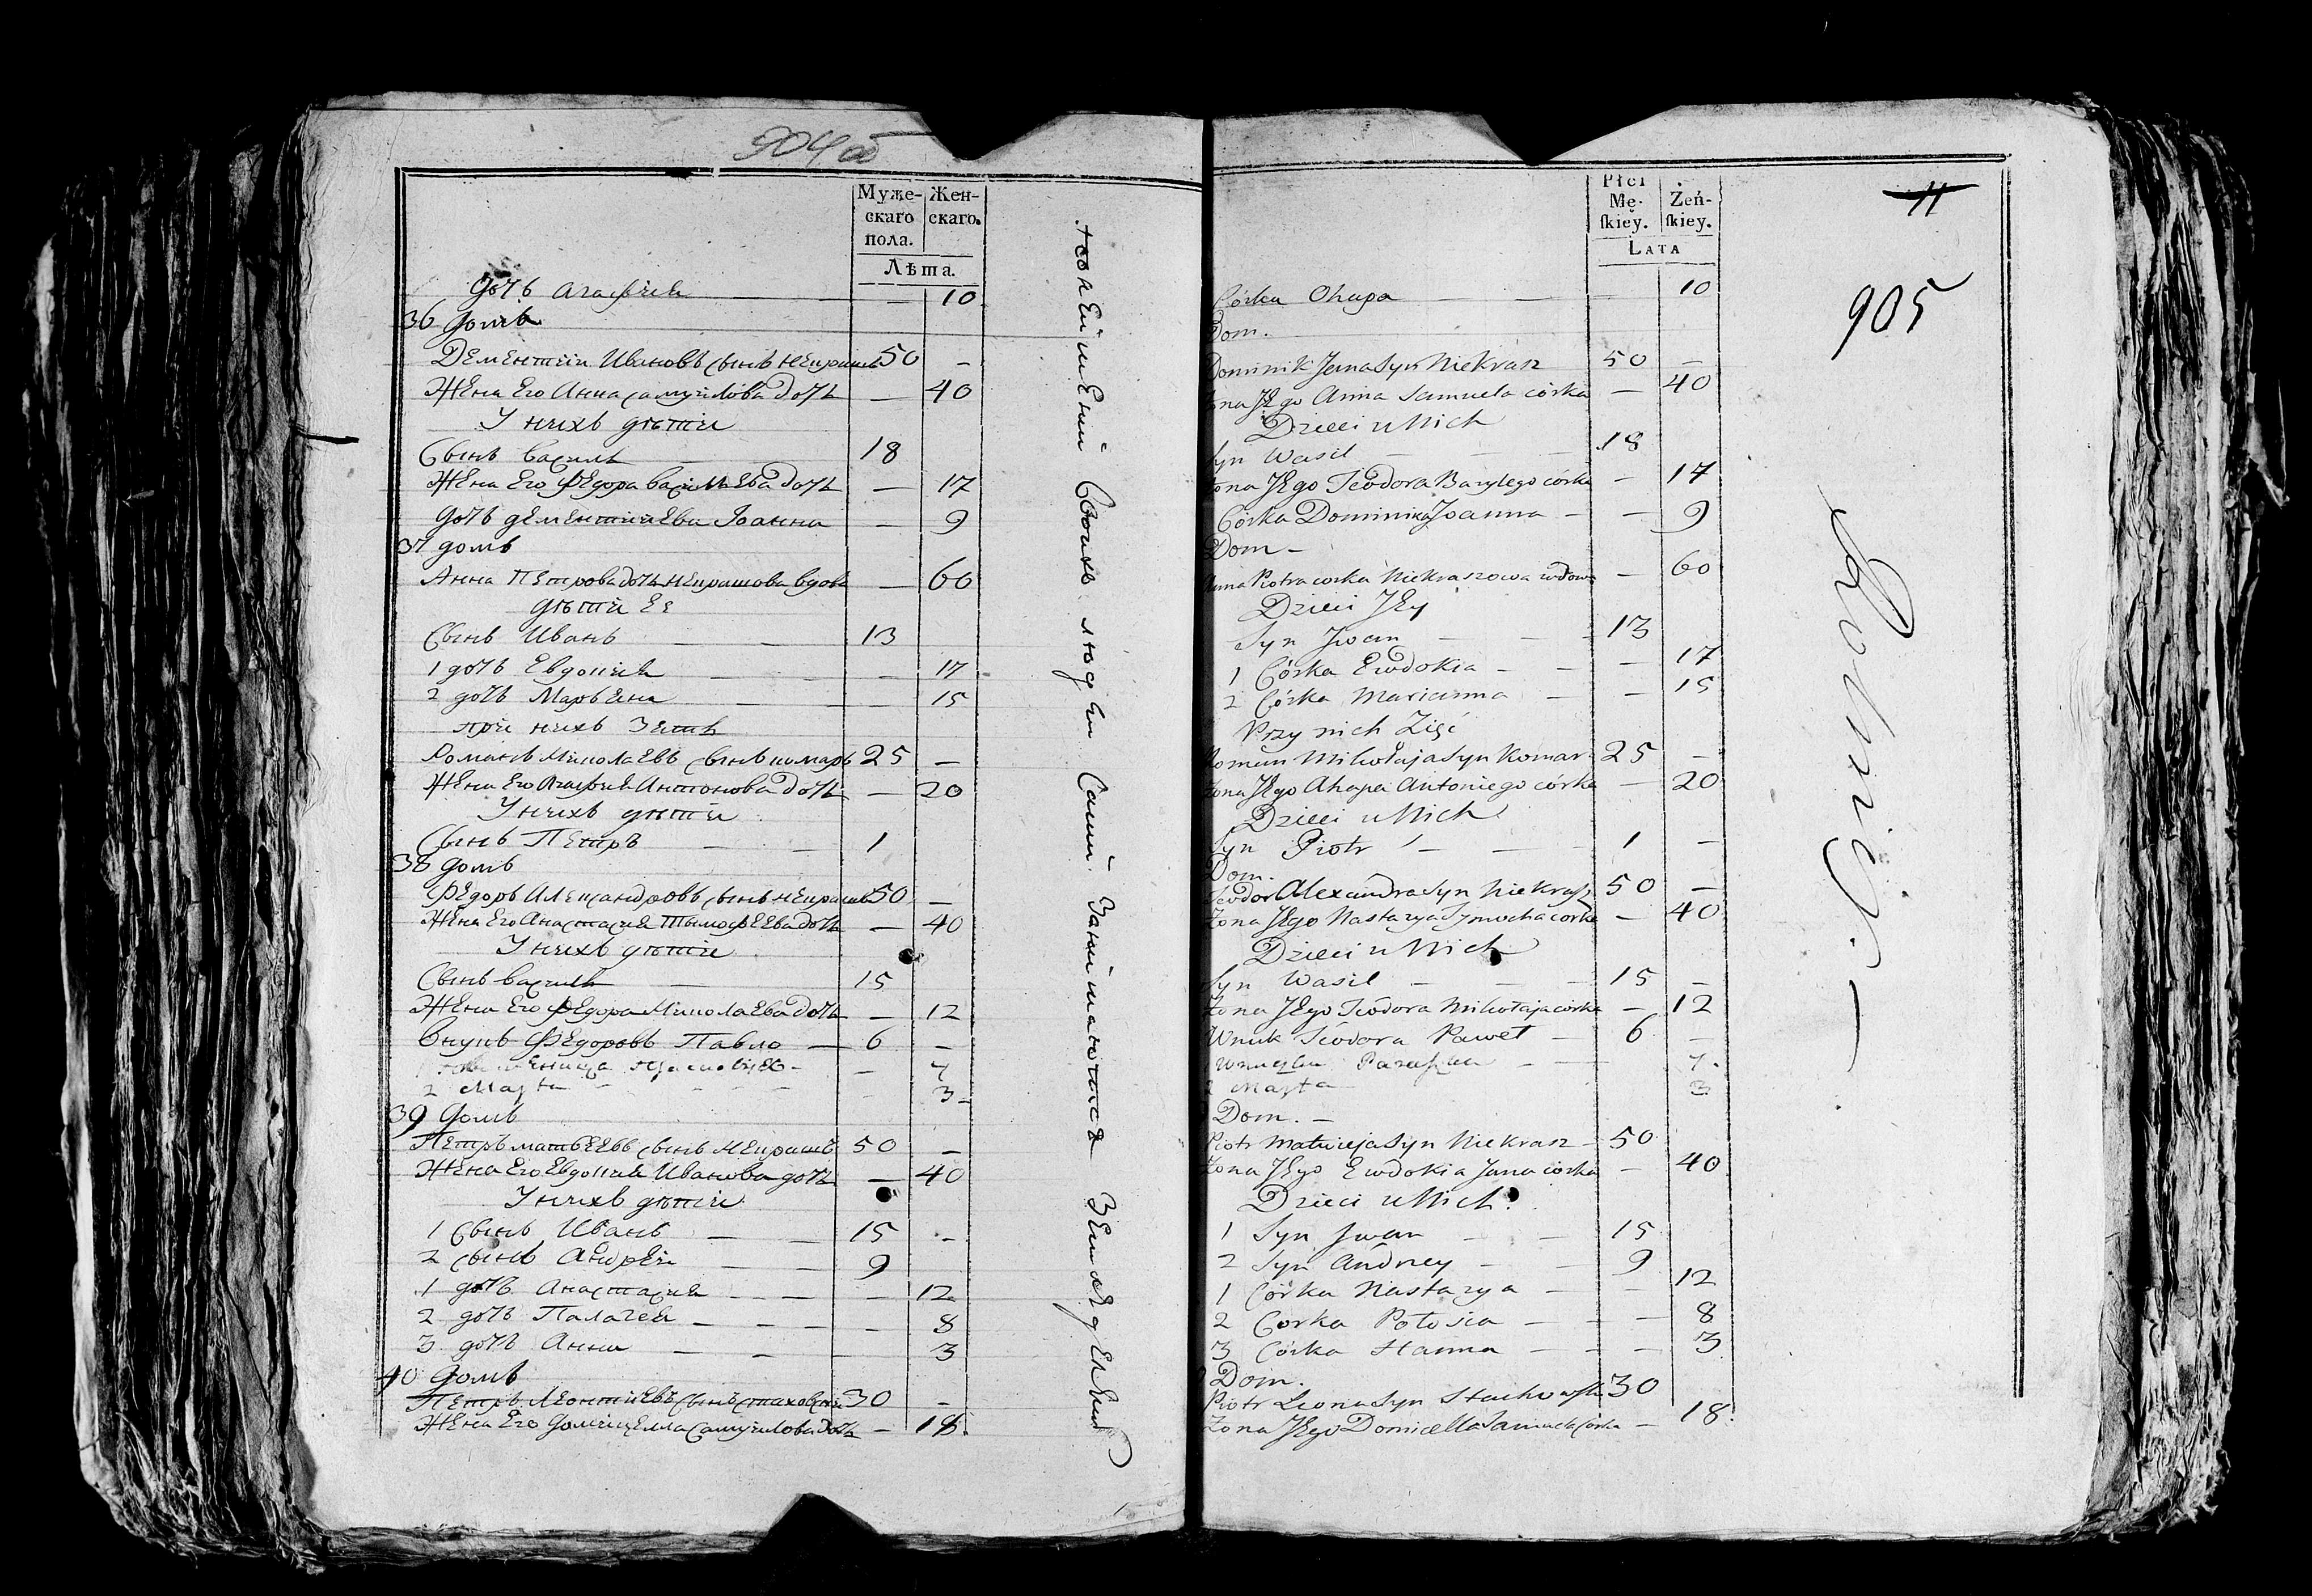 904об
Муже-скаго пола.
Жен-скаго.
Лѣта.
дочь Агафия — — 10
36 домъ
Дементий Ивановъ сынъ Некрашъ 50 —
Жена Его Анна Самуйлова дочь — 40
У нихъ дѣти
Сынъ Василь 18
Жена Его Федора Васильева дочь — 17
дочь дементиева Иоанна — 9
37 домъ
Анна Петрова дочь Некрашова вдова — 60
дѣти Ее
Сынъ Иванъ — — 13
1 дочь Евдокия — — 17
2 дочь Марьяна — — 15
при нихъ Зять
Романъ Миколаевъ сынъ комаръ 25 —
Жена Его Агафия Антонова дочь — 20
У нихъ дѣти
Сынъ Петръ — — 1
38 домъ
Федоръ Александровъ сынъ Некрашъ 50 —
Жена Его Анастасия Тимофеева дочь — 40
У нихъ дѣти
Сынъ Василь — 15
Жена Его Федора Миколаева дочь — 12
Внукъ Федоровъ Павло — 6 —
— 7
2 Марта — — 3
39 домъ
Петръ матвеевъ сынъ Некрашъ 50 —
Жена Его Евдокия Иванова дочь — 40
У нихъ дѣти
1 Сынъ Иванъ — — 15 —
2 сынъ Андрей — — 9
1 дочь Анастасия — — — 12
2 дочь Палагея — — — 8
3 дочь Анна — — — 3
40 домъ
Петръ Леонтиевъ сынъ стаховский 30 —
Жена Его домицелла Самуилова дочь — 18
хозяйственний Своихъ людей Сами Занимаются Земледелием
Płci Mę-ſkiey.
Żeń-ſkiey.
Lata
11
905
Córka Ohapa — — — 10
Dom.
Dominik Jana Syn Niekrasz 50 —
Żona Jego Anna Samuela córka — 40
Dzieci u Nich
Syn Wasil — — 18
Żona Jego Teodora Bazylego córka — 17
Córka Dominika Joanna — — 9
Dom —
Anna Piotra corka Niekraszowa wdowa — 60
Dzieci Jey
Syn Jwan — — 13
1 Córka Ewdokia — — — 17
2 Córka Marianna — — 15
Przy nich Zięć
Roman Mikołaja Syn Komar 25 —
Żona Jego Ahapa Antoniego córka — 20
Dzieci u Nich
Syn Piotr — — 1 —
Dom.
Teodor Alexandra Syn Niekrasz 50 —
Żona Jego Nastazya Tymocha corka — 40
Dzieci u Nich
Syn Wasil — — 15 —
Żona Jego Teodora Mikołaja córka — 12
Wnuk Teodora Paweł — 6 —
Wnuczka Paraska — — 7
2 Marta 3
Dom. —
Piotr Matwieja Syn Niekrasz — 50
Żona Jego Ewdokia Jana córka — 40
Dzieci u Nich
1 Syn Jwan — — 15
2 Syn Andrzey — — 9
1 Córka Nastazya — — 12
2 Corka Połosia — — — 8
3 Córka Hanna — — — 3
Dom.
Piotr Leona Syn Stachowski 30
Żona Jego Domicella Samuela córka — 18